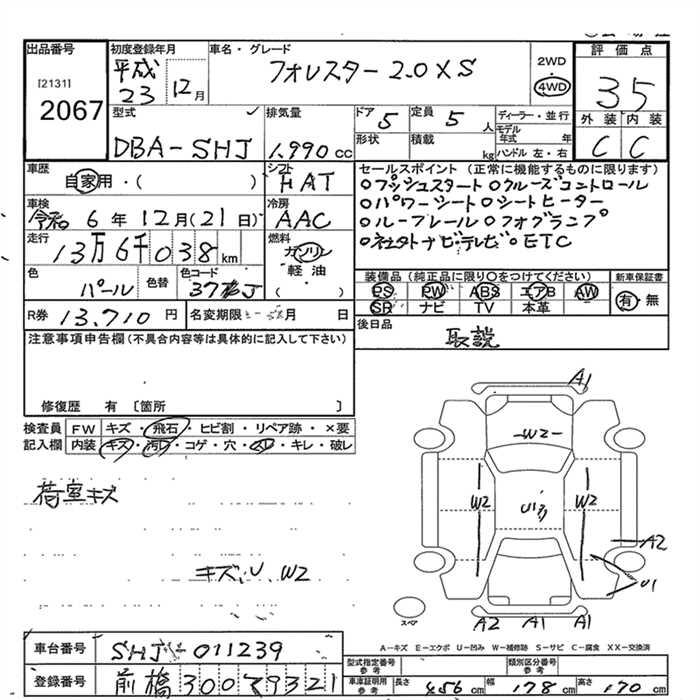 出品番号
[2131]
2067
初度登録年月
平成
23 12月
車名・グレード
フォレスター 2.0XS
2WD
4WD
評価点
3.5
外装 内装
C C
型式
DBA-SHJ
排気量
1.990 cc
ドア
5
定員
5 人
形状
積載
kg
ディーラー・並行
モデル年式 年
ハンドル 左・右
車歴
自家用・( )
シフト
HAT
車検
令和 6年 12月(21日)
冷房
AAC
走行
13万6千038 km
燃料
ガソリン
軽油
( )
色
パール
色替
色コード
37J
R券 13,710 円
名変期限 月 日
セールスポイント (正常に機能するものに限ります)
○プッシュスタート ○クルーズコントロール
○パワーシート ○シートヒーター
○ルーフレール ○フォグランプ
○社外ナビ・テレビ ○ETC
装備品(純正品に限り○をつけてください)
PS PW ABS エアB AW
SR ナビ TV 本革
新車保証書
有・無
後日品
取説
注意事項申告欄(不具合内容等は具体的に記入して下さい)
修復歴 有 〔箇所 〕
検査員記入欄
FW キズ・飛石・ヒビ割・リペア跡・×要
内装 キズ・汚れ・コゲ・穴・スレ・キレ・破レ
荷室キズ
キズ、U、W2
A1
W2
W2
U1
W2
A2
U1
スペア
A2 A1 A1
A-キズ E-エクボ U-凹み W-補修跡 S-サビ C-腐食 XX-交換済
車台番号 SHJ-011239
登録番号 前橋 300
型式指定番号 参考
類別区分番号 参考
車検証明用 参考 長さ 456 cm 幅 178 cm 高さ 170 cm